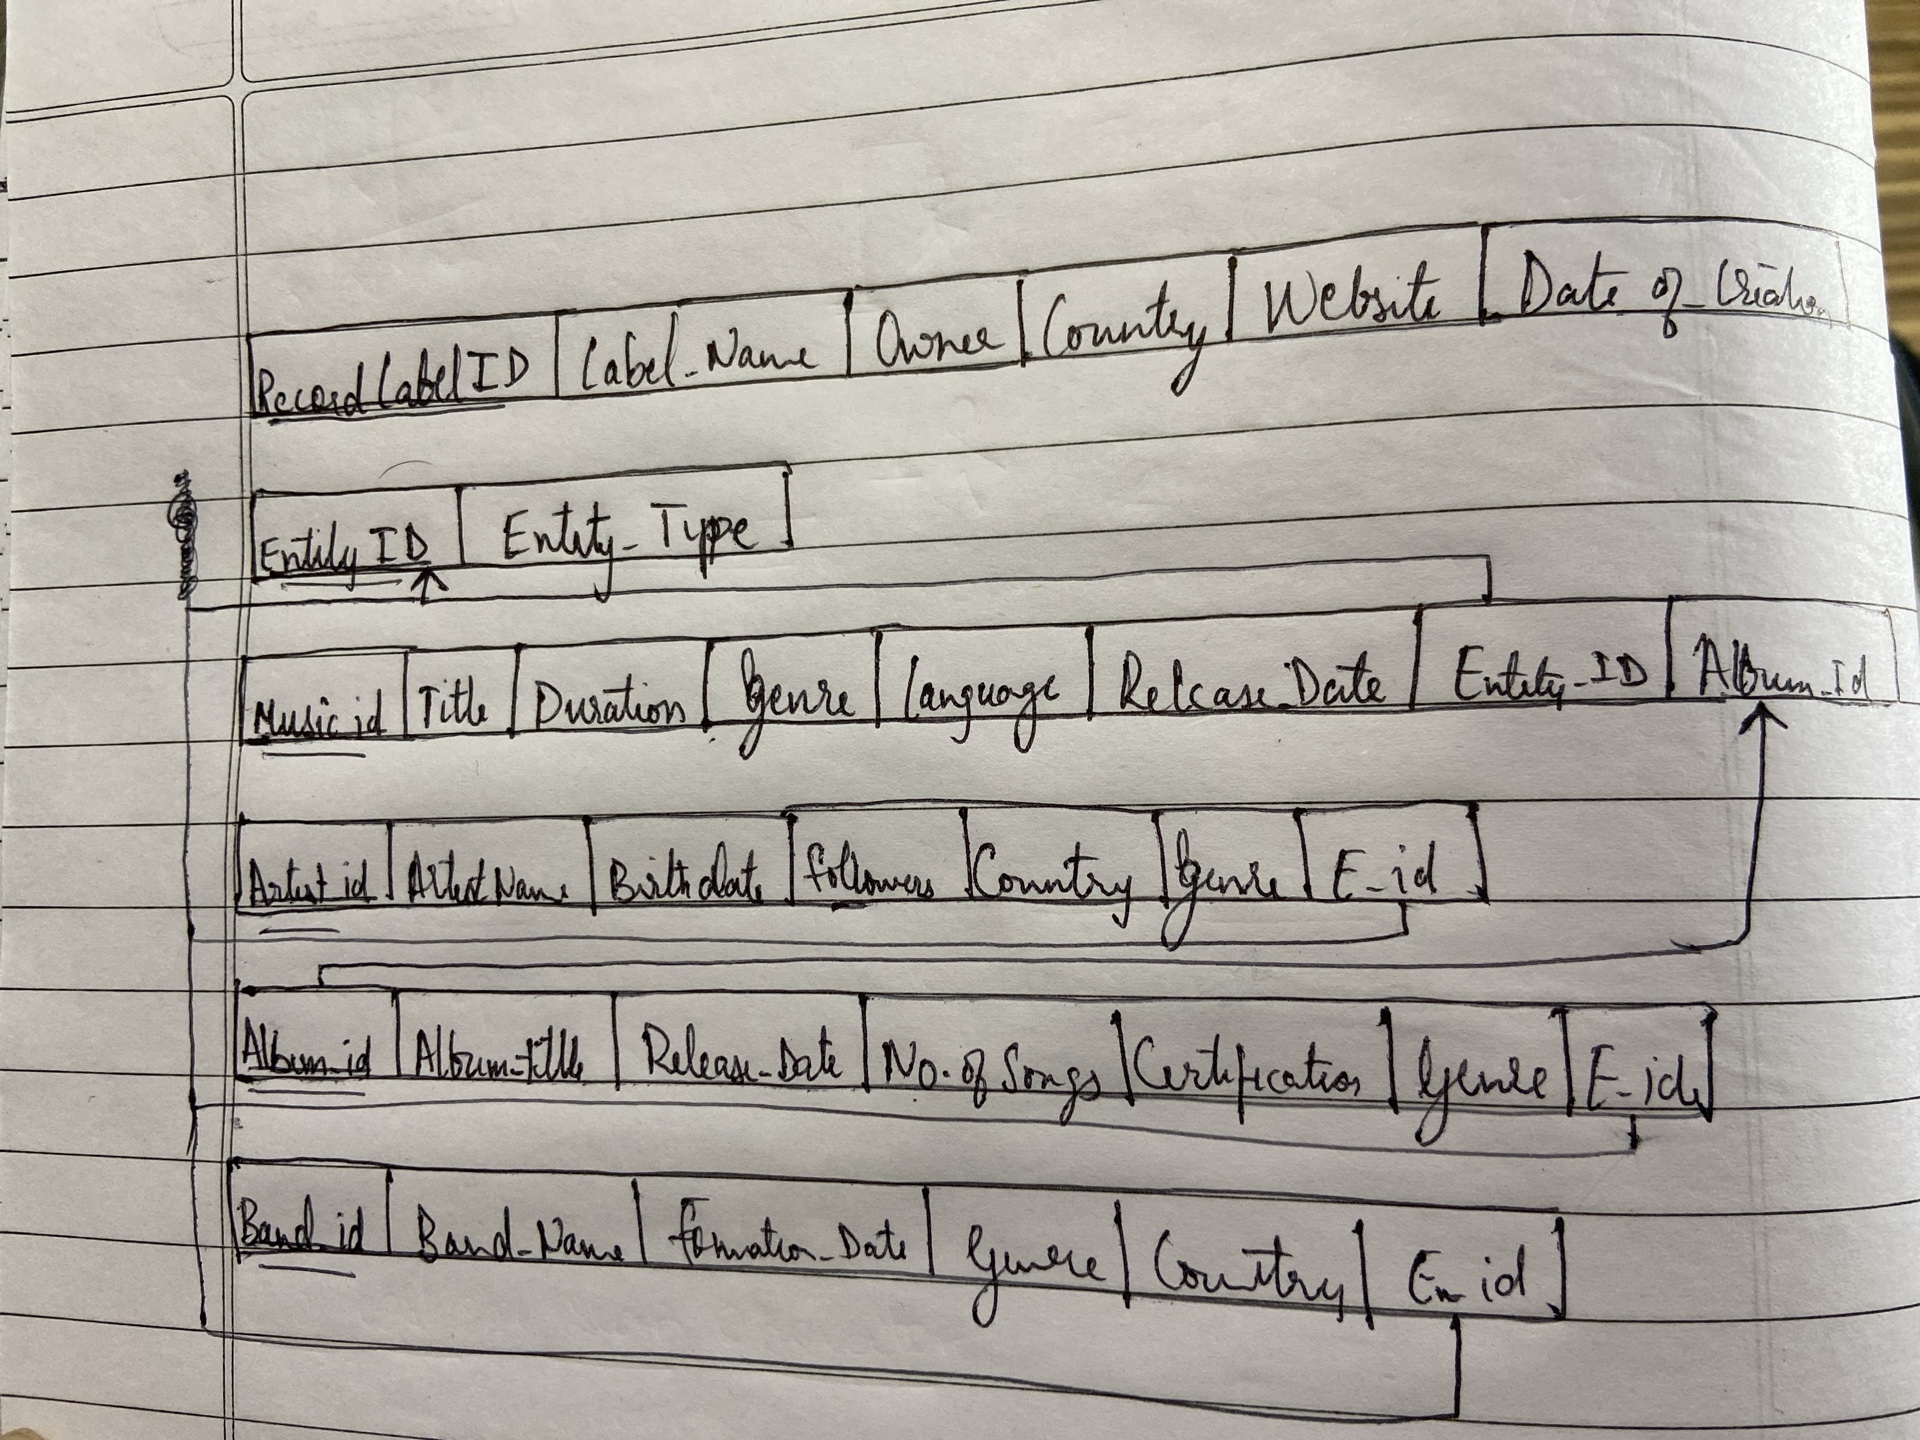 Record Label ID Label_Name Owner Country Website Date_of_Creation
Entity ID Entity_Type
Music id Title Duration Genre Language Release_Date Entity_ID Album_Id
Artist_id Artist Name Birth date followers Country Genre E_id
Album_id Album_title Release_Date No. of Songs Certification Genre E_id
Band_id Band_Name formation_Date Genre Country En_id